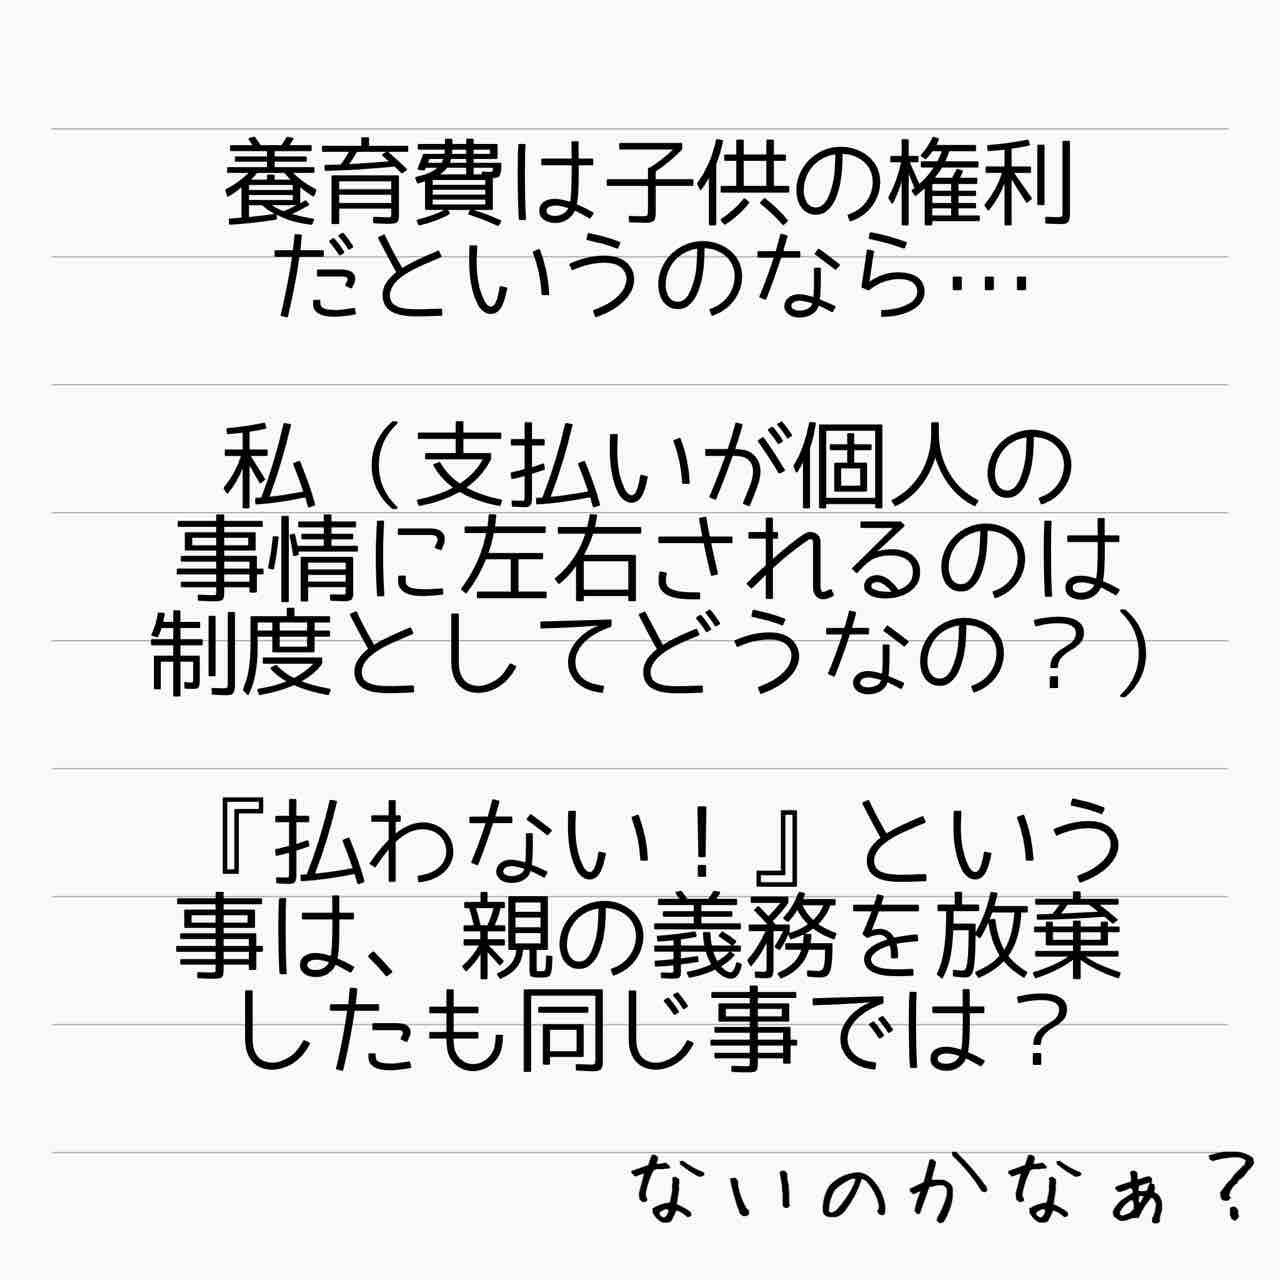 養育費は子供の権利
だというのなら…
私（支払いが個人の
事情に左右されるのは
制度としてどうなの？）
『払わない！』という
事は、親の義務を放棄
したも同じ事では？
ないのかなぁ？